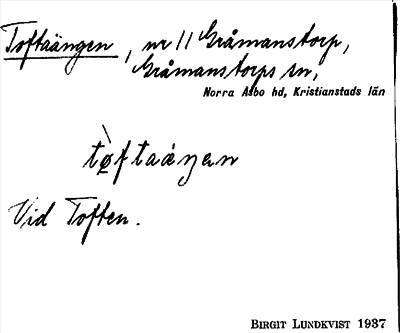 Toftaängen, nr 11 Gråmanstorp,
Gråmanstorps sn,
Norra Åsbo hd, Kristianstads län
Vid Toften.
BIRGIT LUNDKVIST 1937